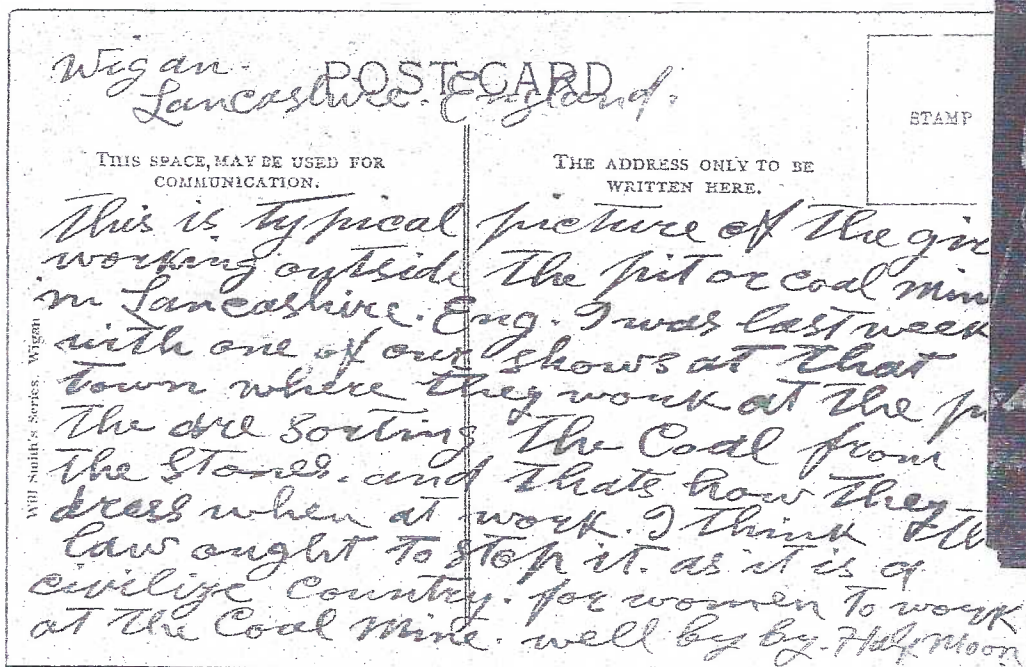 Wigan.
POST CARD
Lancashire. England.
STAMP
THIS SPACE, MAY BE USED FOR
COMMUNICATION.
THE ADDRESS ONLY TO BE
WRITTEN HERE.
this is typical picture of the gir
working outside the pit or coal min
in Lancashire. Eng. I was last week
with one of our shows at that
town where they work at the
the are sorting the Coal from
the Stones. and thats how they
dress when at work. I think
law ought to stop it. as it is a
civilize Country. for women to work
at the Coal Mine. well by by. Half Moon
Will Smith's Series, Wigan